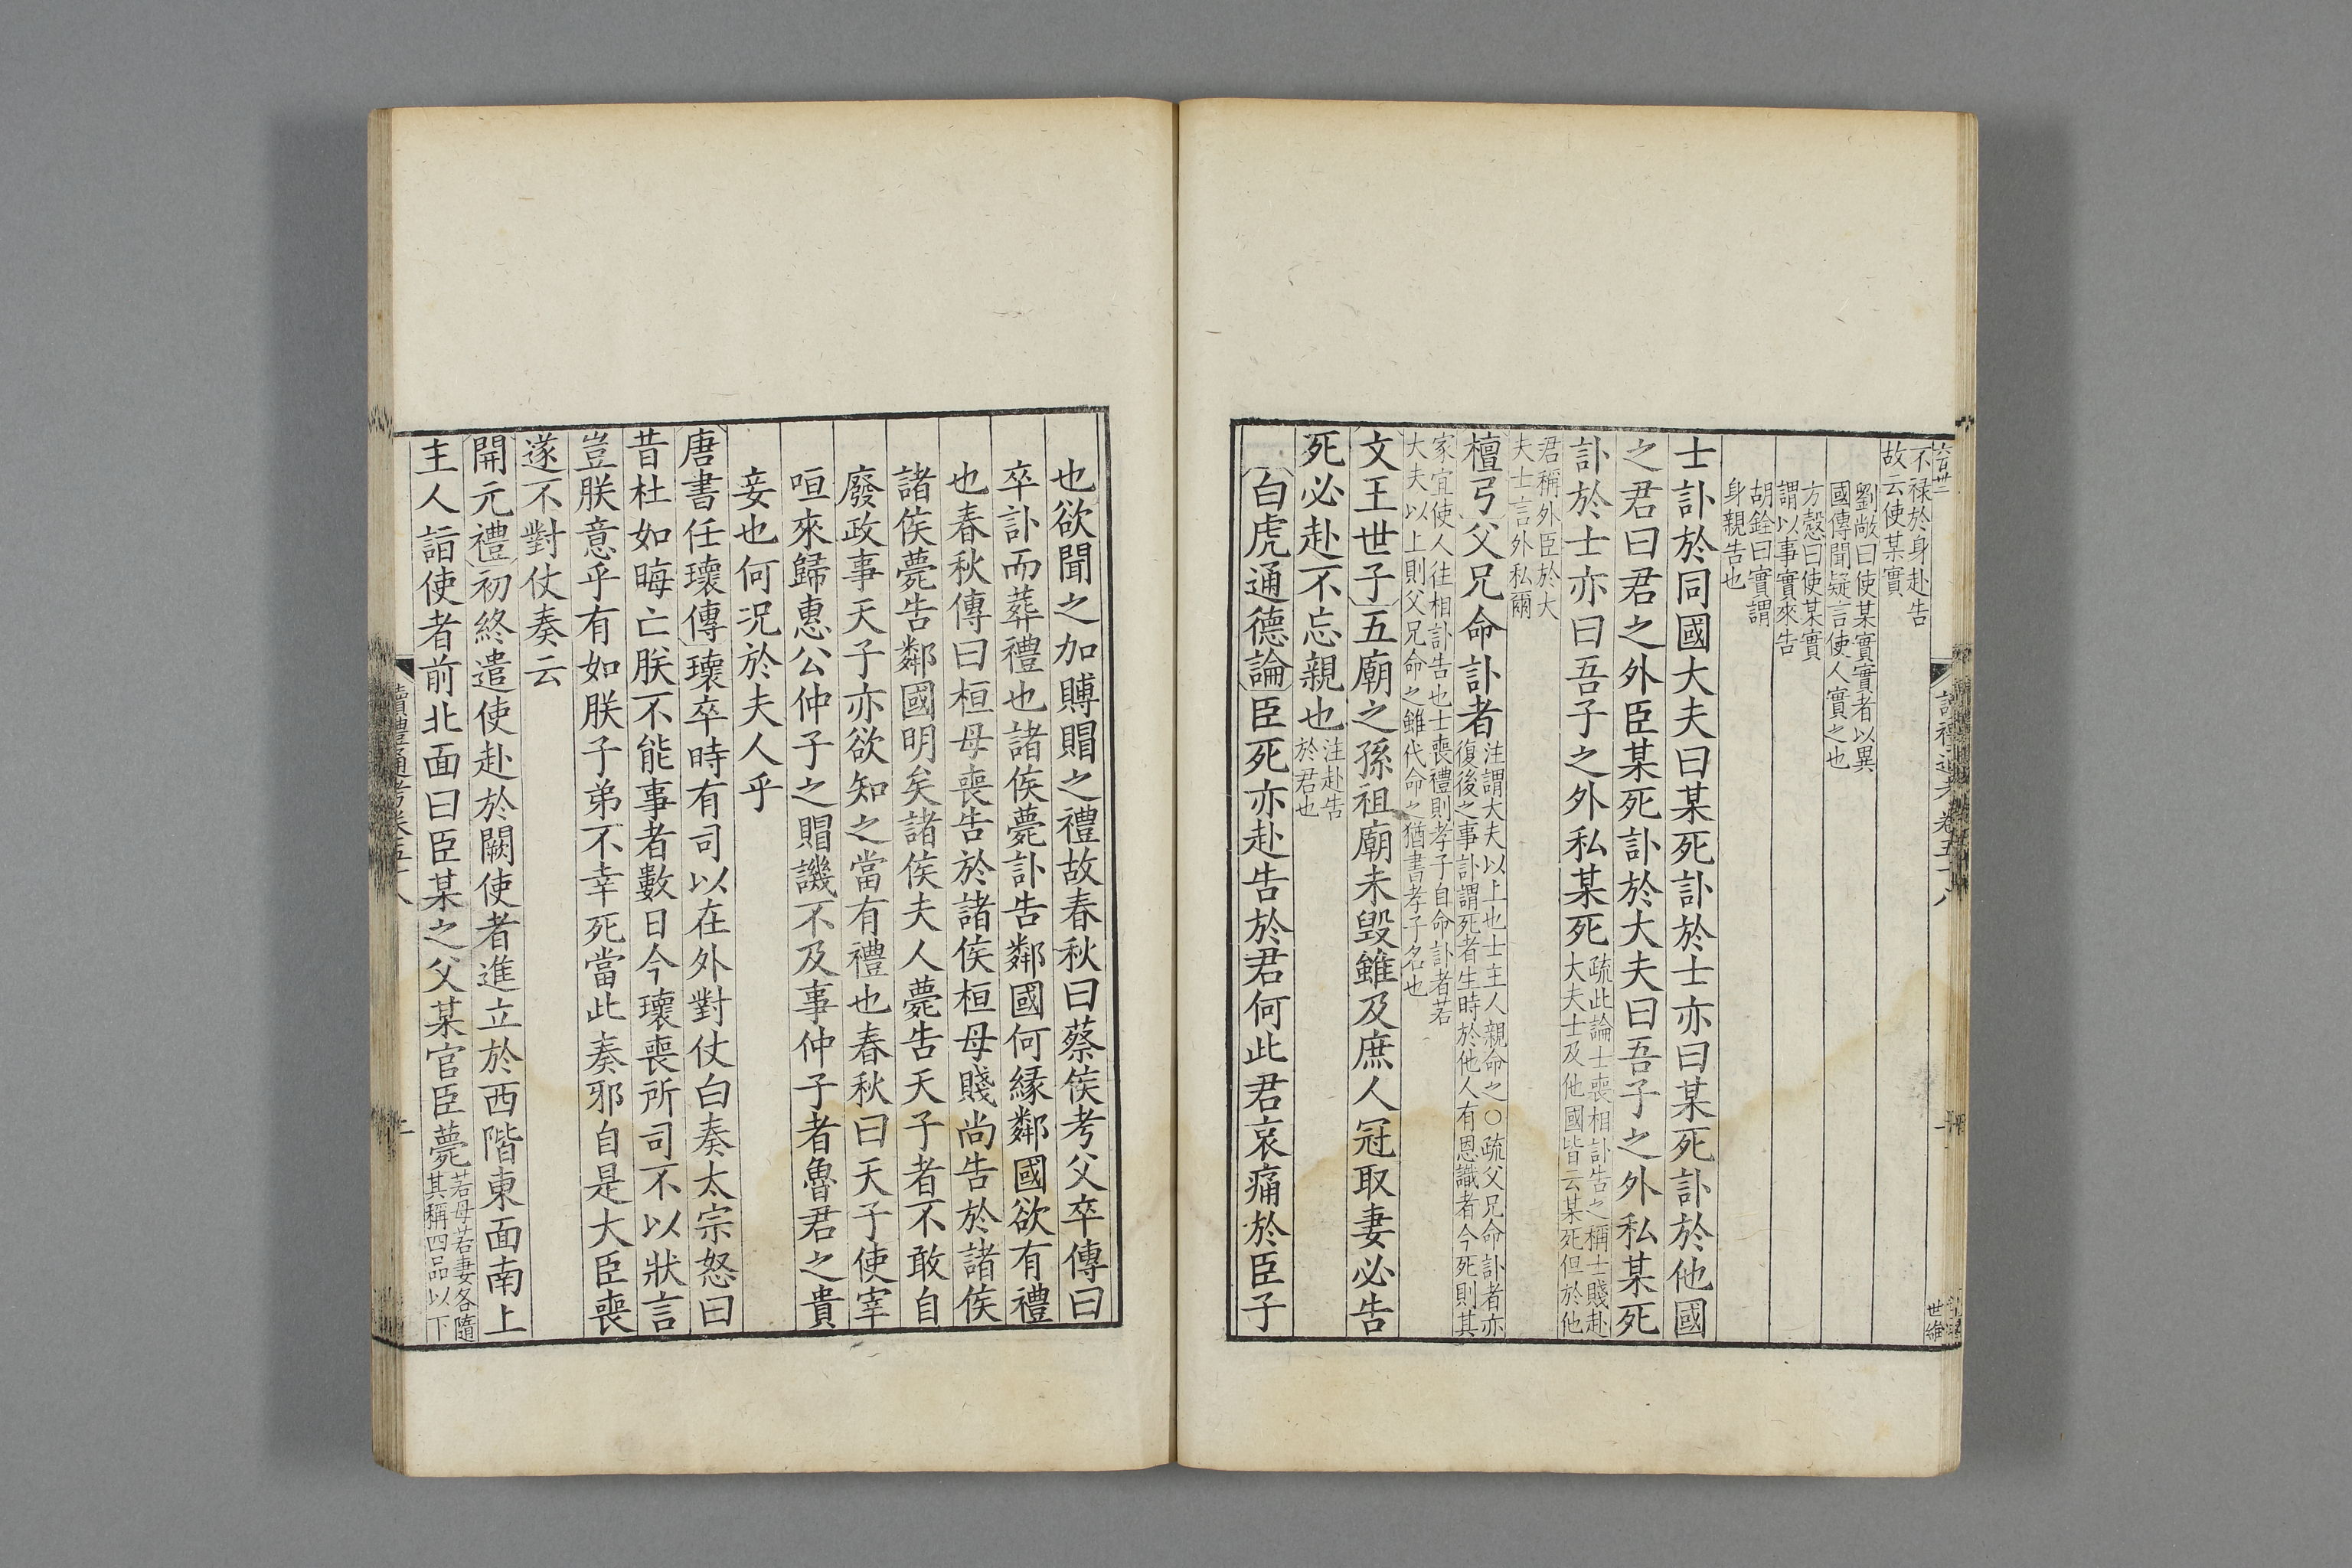 不禄於身赴告
故云使某實
劉敞曰使某實實者以異
國傳聞疑言使人實之也
方慤曰使某實
謂以事實來告
胡銓曰實謂
身親告也
士訃於同國大夫曰某死訃於士亦曰某死訃於他國
之君曰君之外臣某死訃於大夫曰吾子之外私某死
訃於士亦曰吾子之外私某死
疏此論士喪相訃告之稱士賤赴
大夫士及他國皆云某死但於他
君稱外臣於大
夫士言外私爾
檀弓父兄命訃者
注謂大夫以上也士主人親命之○疏父兄命訃者亦
復後之事訃謂死者生時於他人有恩識者今死則其
家宜使人往相訃告也士喪禮則孝子自命訃者若
大夫以上則父兄命之雖代命之猶書孝子名也
文王世子五廟之孫祖廟未毀雖及庶人冠取妻必告
死必赴不忘親也
注赴告
於君也
白虎通德論臣死亦赴告於君何此君哀痛於臣子
也欲聞之加賻賵之禮故春秋曰蔡侯考父卒傳曰
卒訃而葬禮也諸侯薨訃告鄰國何緣鄰國欲有禮
也春秋傳曰桓母喪告於諸侯桓母賤尚告於諸侯
諸侯薨告鄰國明矣諸侯夫人薨告天子者不敢自
廢政事天子亦欲知之當有禮也春秋曰天子使宰
咺來歸惠公仲子之賵譏不及事仲子者魯君之貴
妾也何况於夫人乎
唐書任瓌傳瓌卒時有司以在外對仗白奏太宗怒曰
昔杜如晦亡朕不能事者數日今瓌喪所司不以狀言
豈朕意乎有如朕子弟不幸死當此奏邪自是大臣喪
遂不對仗奏云
開元禮初終遣使赴於闕使者進立於西階東面南上
主人詣使者前北面曰臣某之父某官臣薨
若母若妻各隨
其稱四品以下
讀禮通考卷五十八